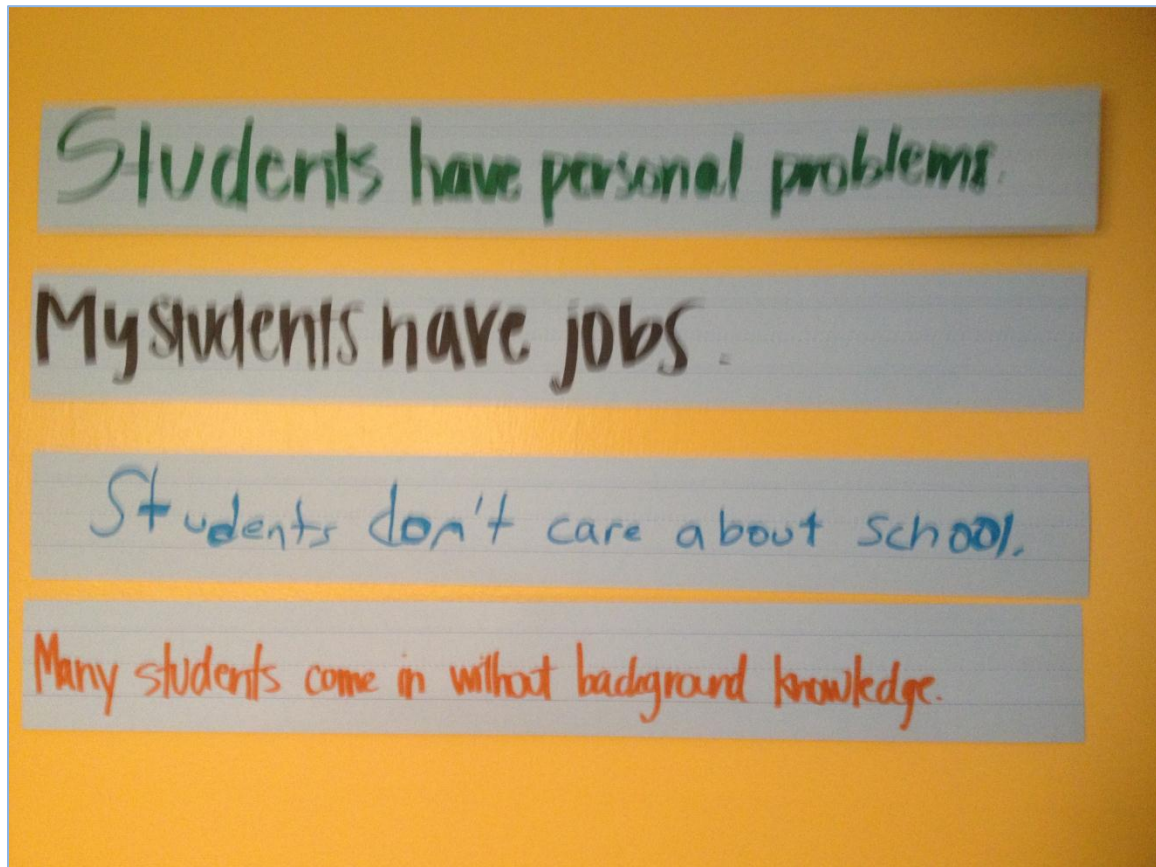 Students have personal problems.
My students have jobs.
Students don't care about school.
Many students come in without background knowledge.